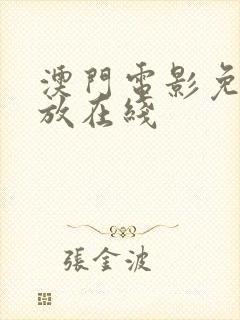 澳門電影免
放在綫
張金波